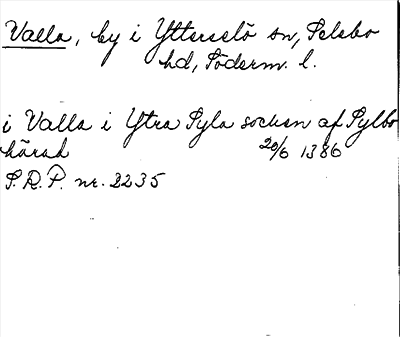 Valla, by i Ytterselö sn, Selebo
hd, Söderm. l.
i Valla i Ytra Syla socken af Sylbo
härad 20/6 1386
S.R.P. nr. 2235